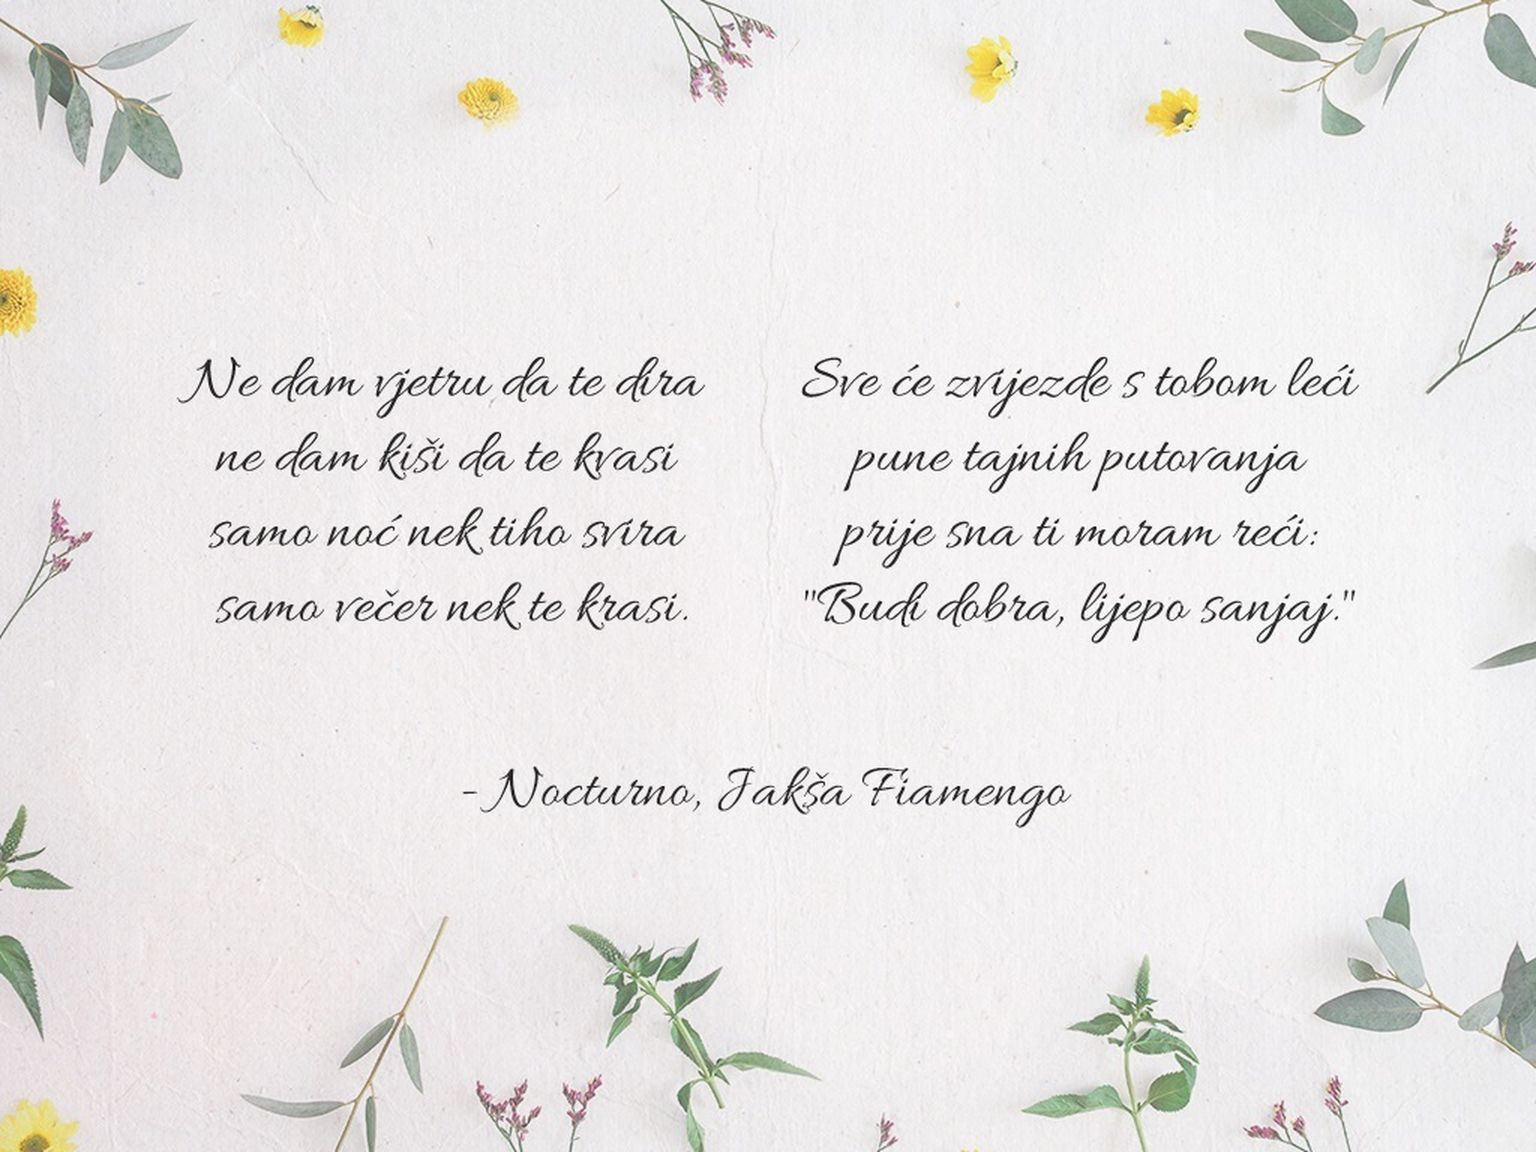 Ne dam vjetru da te dira
ne dam kiši da te kvasi
samo noć nek tiho svira
samo večer nek te krasi.
Sve će zvijezde s tobom leći
pune tajnih putovanja
prije sna ti moram reći:
"Budi dobra, lijepo sanjaj."
- Nocturno, Jakša Fiamengo